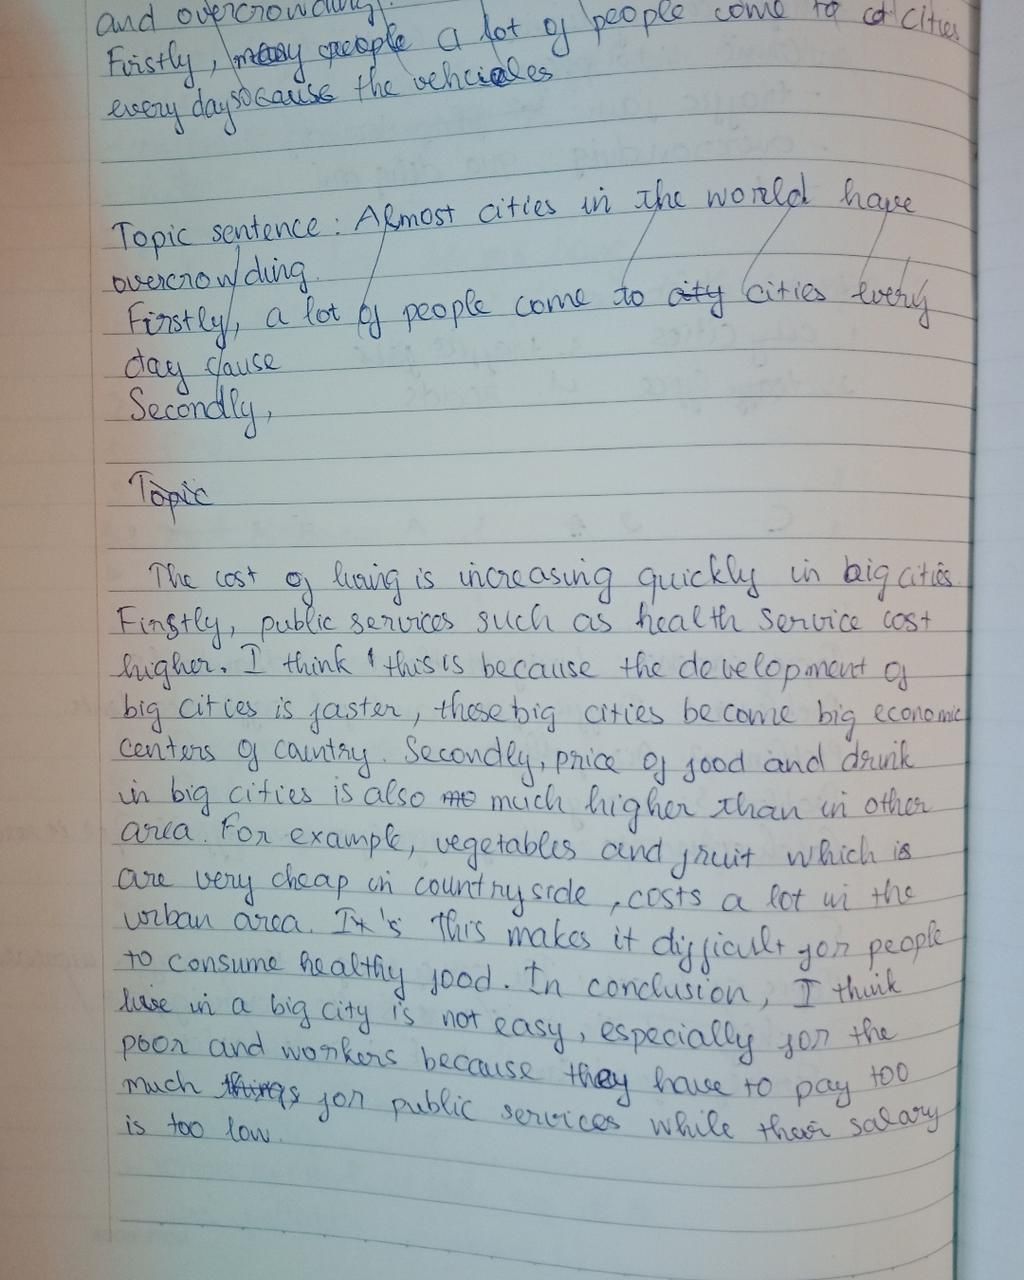 and overcrowding.
Firstly, many people a lot of people come to a cities
every day so cause the vehicles
Topic sentence: Almost cities in the world have
overcrowding.
Firstly, a lot of people come to city cities every
day cause
Secondly,
Topic
The cost of living is increasing quickly in big cities.
Firstly, public services such as health service cost
higher. I think this is because the development of
big cities is faster, these big cities become big economic
centers of country. Secondly, price of food and drink
in big cities is also mo much higher than in other
area. For example, vegetables and fruit which is
are very cheap in countryside, costs a lot in the
urban area. It's This makes it difficult for people
to consume healthy food. In conclusion, I think
live in a big city is not easy, especially for the
poor and workers because they have to pay too
much things for public services while their salary
is too low.